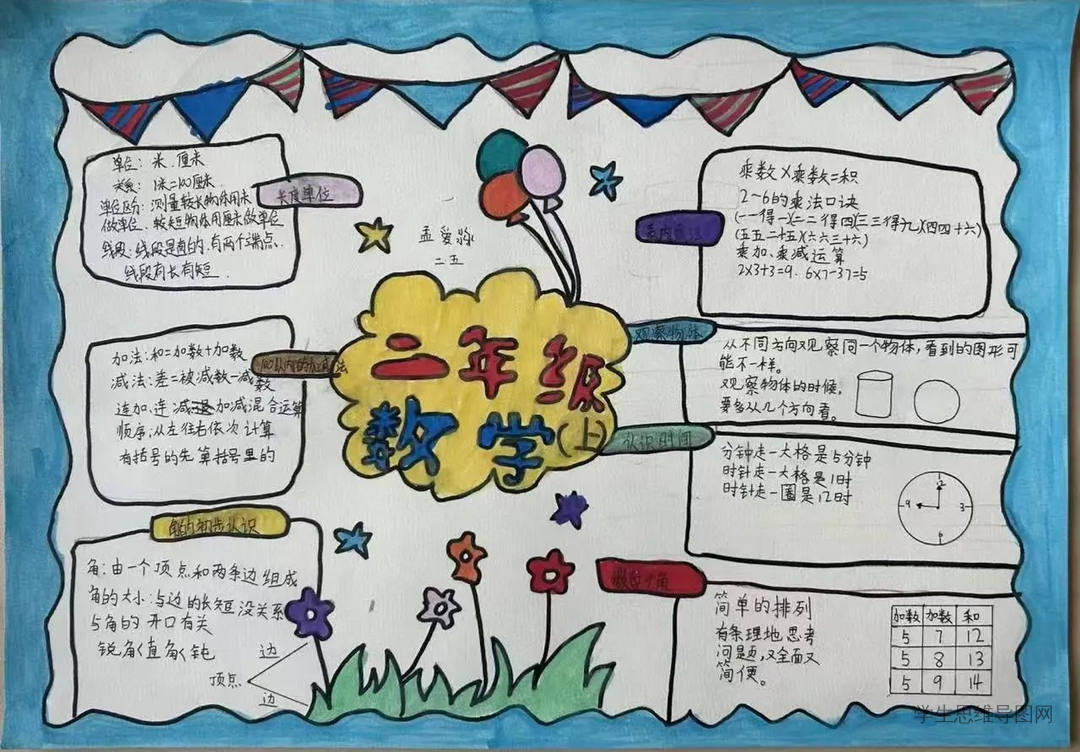 长度单位
单位：米．厘米
关系：1米=100厘米．
单位区分：测量较长物体用米
做单位．较短物体用厘米做单位
线段：线段是直的．有两个端点．
线段有长有短．
100以内的加减法
加法：和=加数+加数
减法：差=被减数-减数
连加、连减 加减混合运算
顺序：从左往右依次计算
有括号的先算括号里的
角的初步认识
角：由一个顶点和两条边组成
角的大小：与边的长短没关系
与角的开口有关
锐角〈直角〈钝
边
顶点
边
孟爱
二五
二年级
数学(上)
乘数×乘数=积
2~6的乘法口诀
(一一得一)(二二得四)(三三得九)(四四十六)
(五五二十五)(六六三十六)
乘加、乘减运算
2×3+3=9、6×7-37=5
观察物体
从不同方向观察同一个物体，看到的图形可
能不一样。
观察物体的时候，
要多从几个方向看。
认识时间
分钟走一大格是5分钟
时针走一大格是1时
时针走一圈是12时
12
9 3
6
简单的排列
有条理地思考
问题，又全面又
简便。
加数 加数 和
5 7 12
5 8 13
5 9 14
学生思维导图网